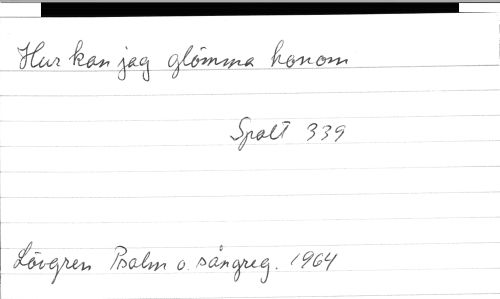 Hur kan jag glömma honom
Spalt 339
Lövgren Psalm o. sångreg. 1964